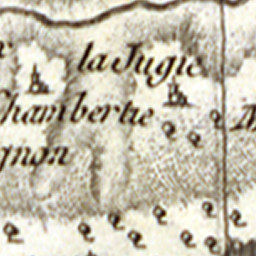 la Jugie
Chambertie
gnon